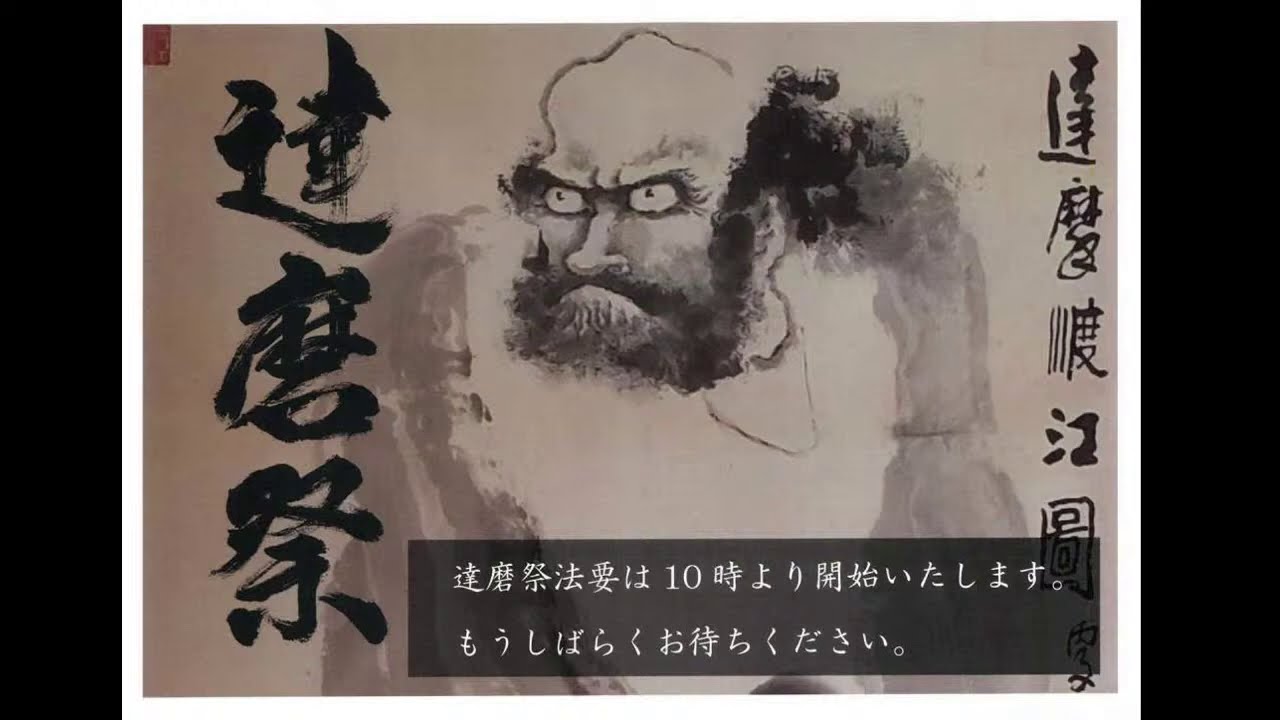 達磨祭
達磨渡江圖
達磨祭法要は10時より開始いたします。
もうしばらくお待ちください。